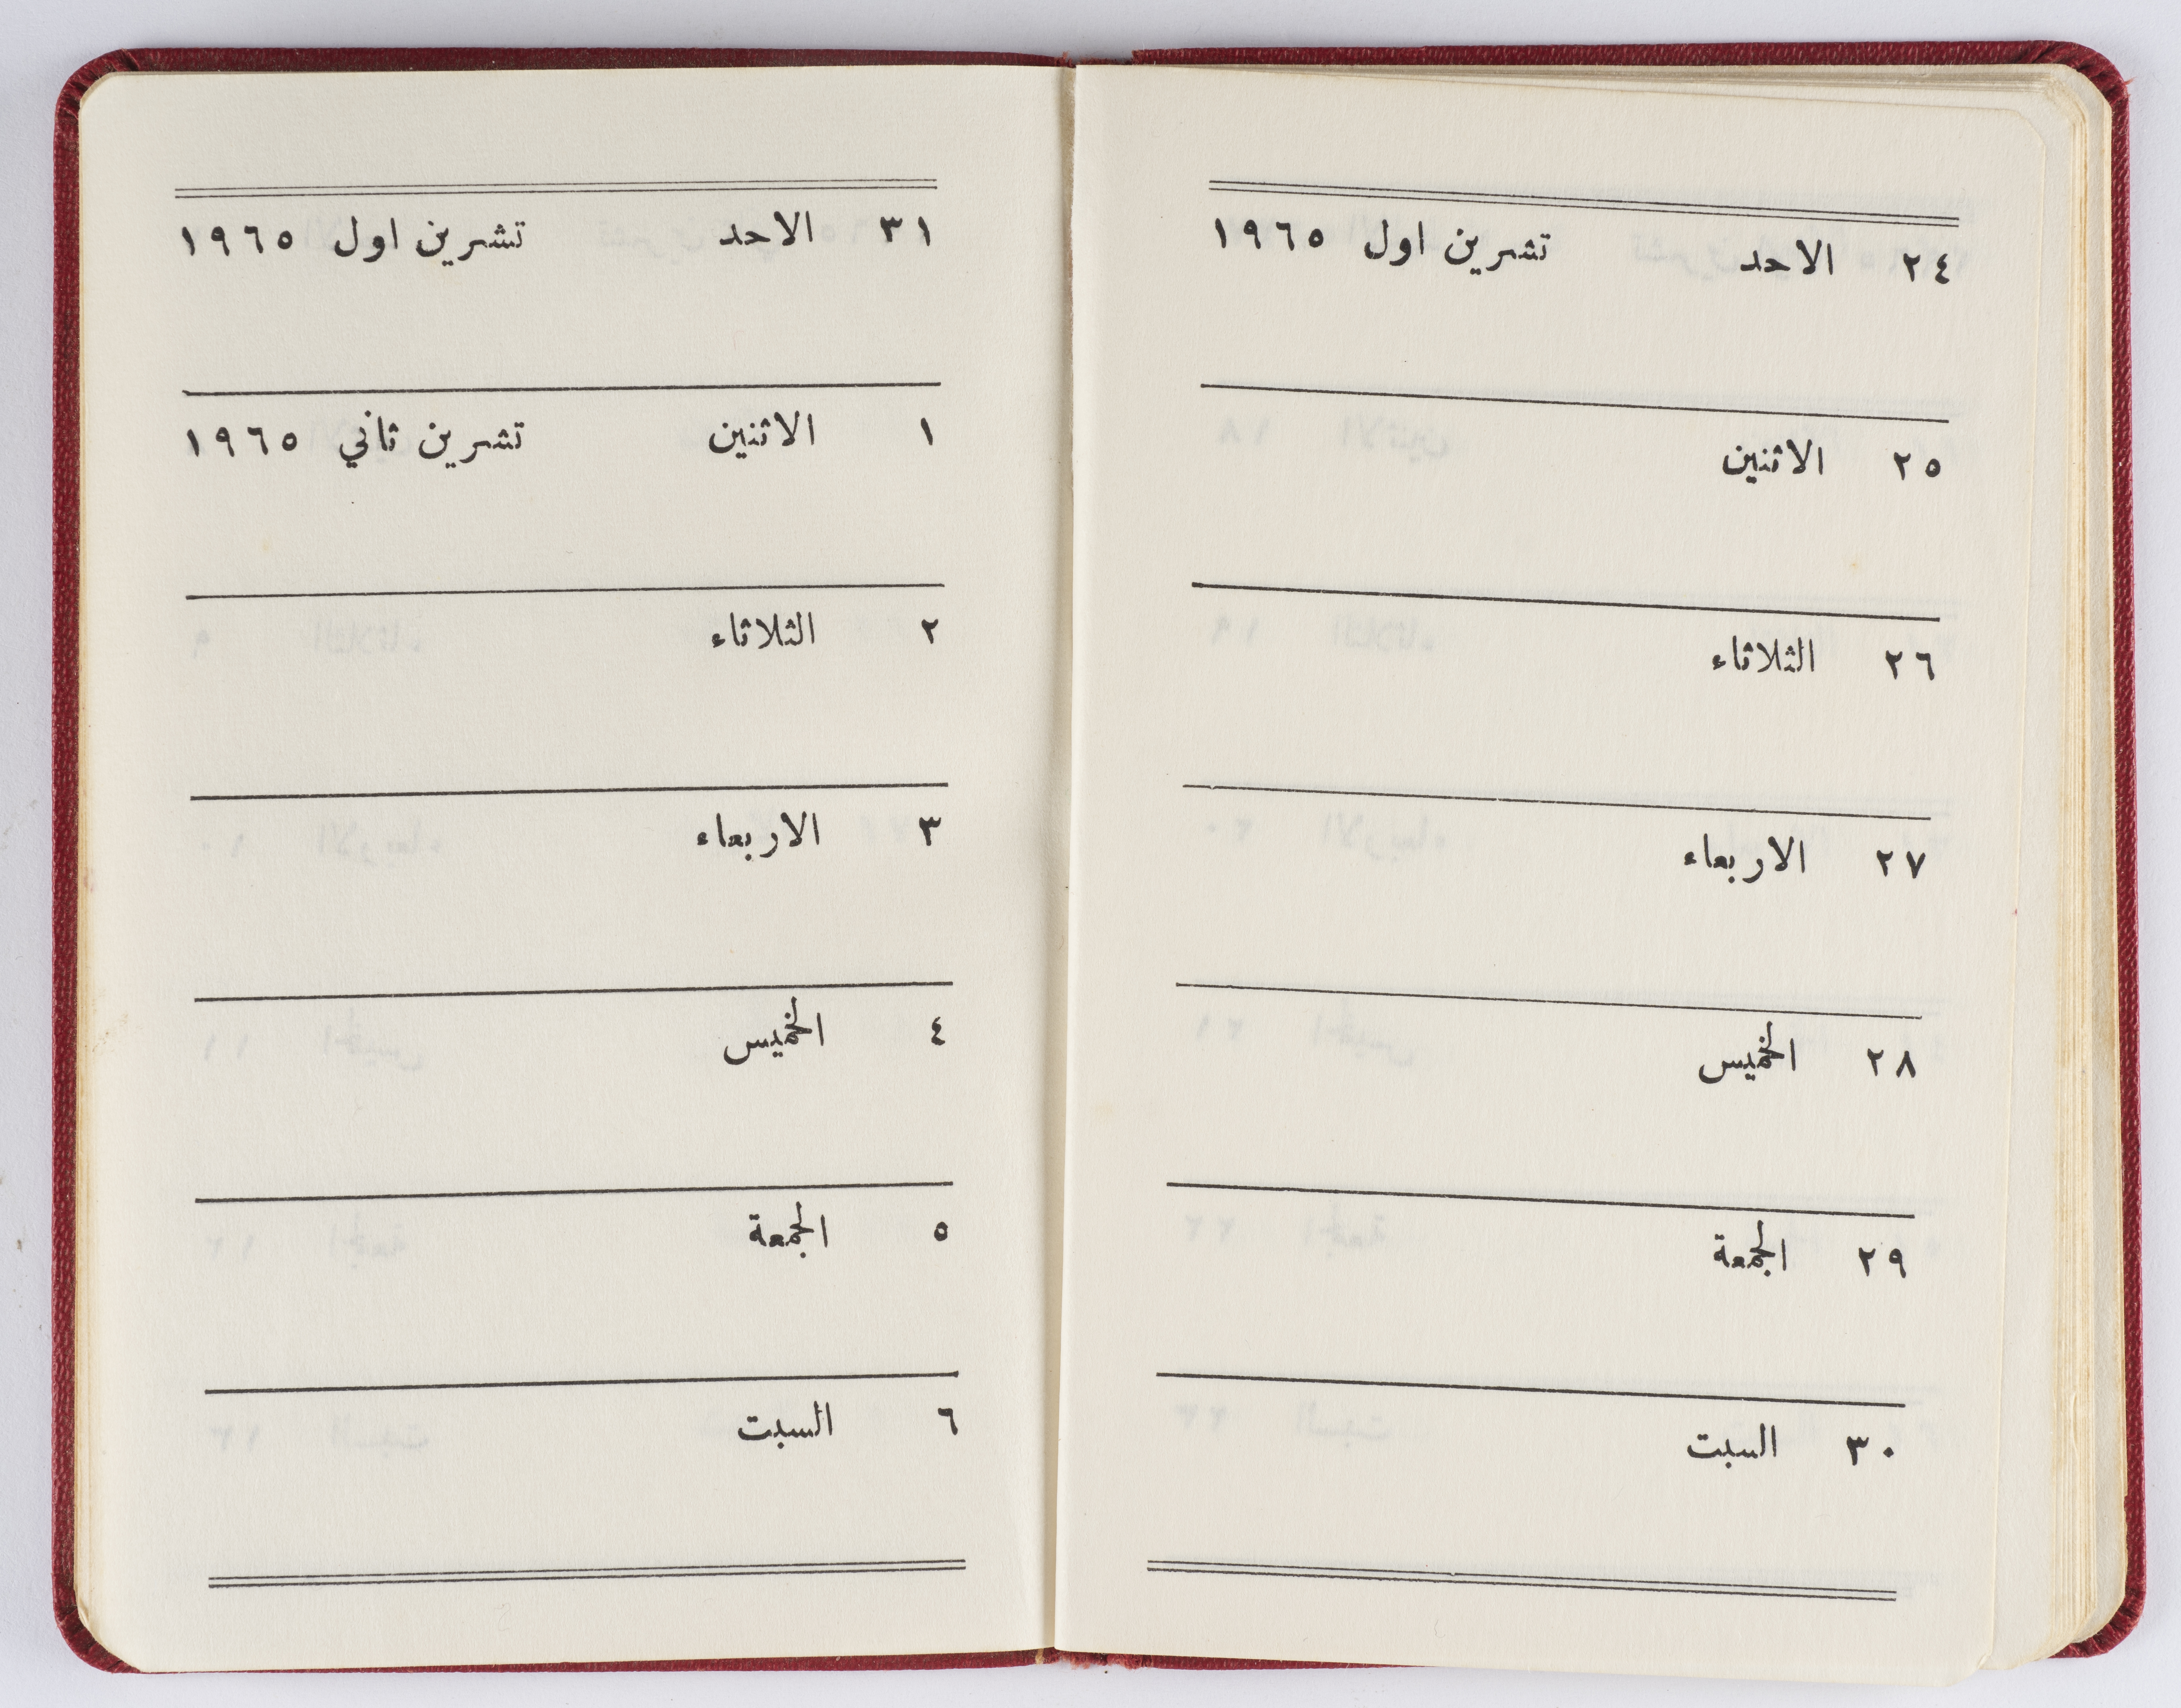 ٢٤ الاحد تشرين اول ١٩٦٥
٢٥ الاثنين
٢٦ الثلاثاء
٢٧ الاربعاء
٢٨ الخميس
٢٩ الجمعة
٣٠ السبت
٣١ الاحد تشرين اول ١٩٦٥
١ الاثنين تشرين ثاني ١٩٦٥
٢ الثلاثاء
٣ الاربعاء
٤ الخميس
٥ الجمعة
٦ السبت